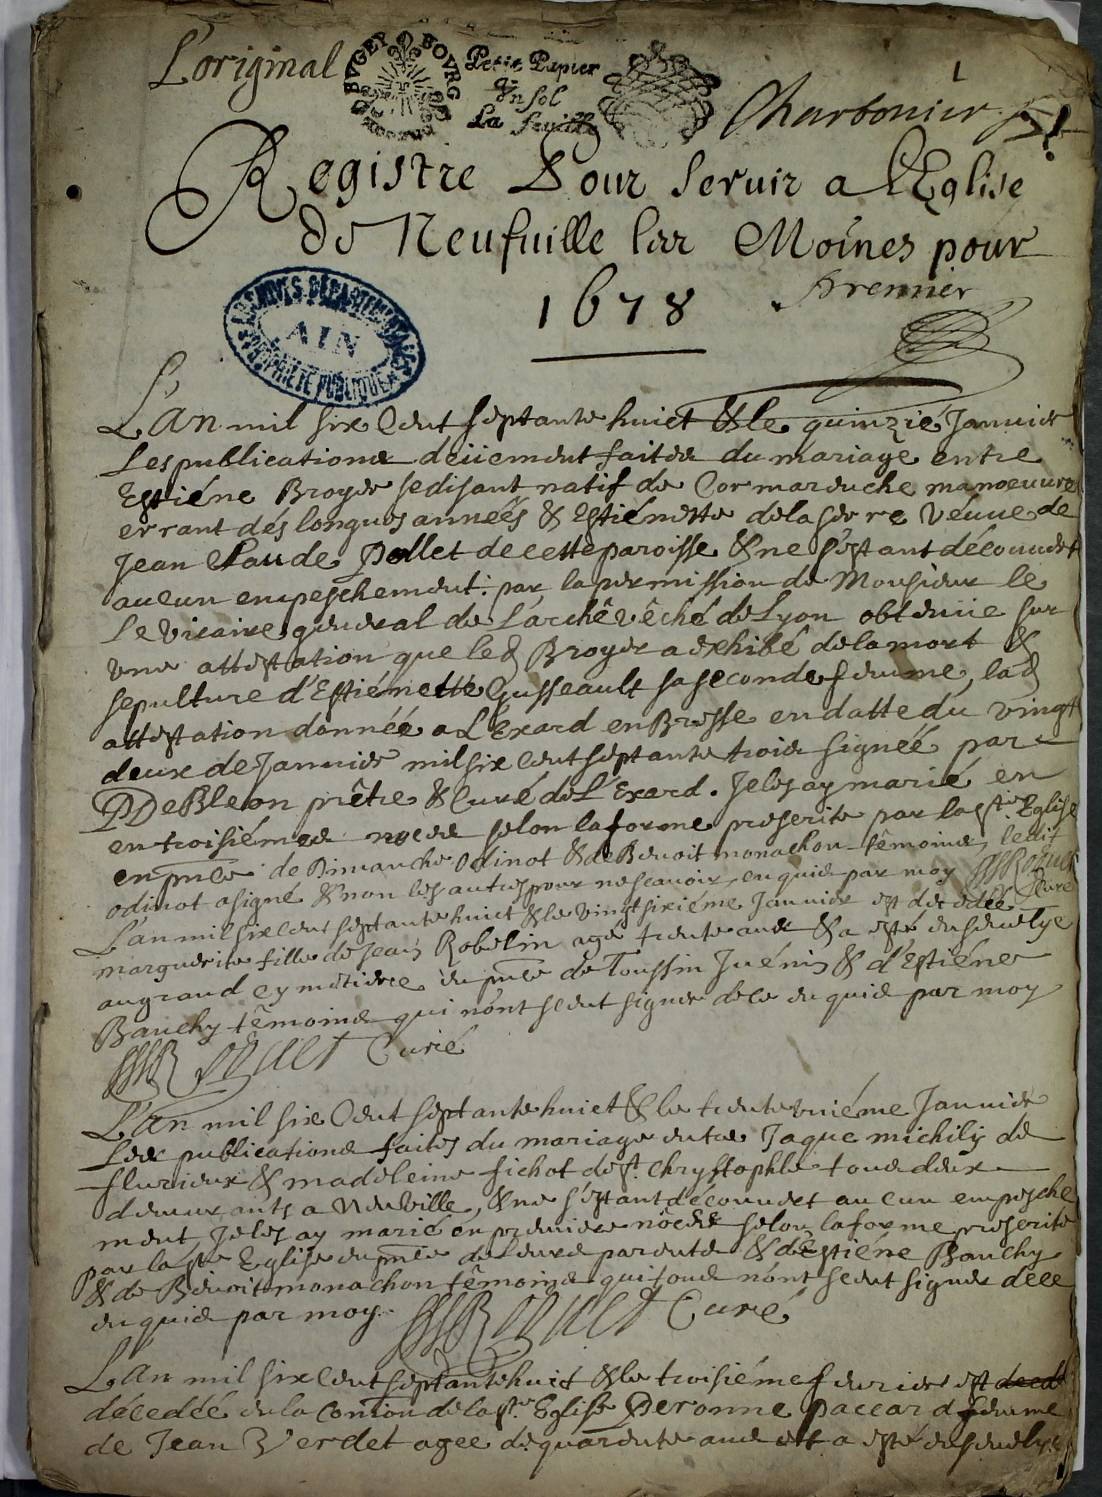 L'original
BVGEY BOVRG
Petit Papier
Vn sol
La feuille
1
Charbonier
Registre Pour Seruir a L'Eglise
de Neufuille les Moines pour
1678
Frennier
ARCHIVES DÉPARTEMENTALES
AIN
PROPRIÉTÉ PUBLIQUE
L'An mil six Cent septante huict & le quinzié Januier
Les publications deüement faites du mariage entre
Estiéne Broyer se disant natif de Cormaruche manoeuure
errant dés longues annéés & Estiénette de la serre Veuue de
Jean Claude Pollet de cette paroisse & ne s'estant découuert
aucun empeschement: par la permission de Monsieur le
Le Vicaire general de L'archêvêché de Lyon obtenüe sur
Vne attestation que led Broyer a exhibé de la mort &
sepulture d'Estiénette Gusseault sa seconde femme, lad
attestation donnéé a L'Exard en Bresse en datte du vingt
deux de Januier mil six Cent septante trois signéé par
P DeBleon prêtre & Curé de L'Exard. Je les ay marié en
en troisiémes noces selon la forme prescrite par la ste Eglise
en pnce de Dimanche Odinot & de Benoit monachon têmoins, ledit
odinot a signé & non les autres pour ne scauoir, enquis par moy
Curé
Lan mil six Cent septante huict & le vingt sixiéme Januier est decedée
marguerite fille de Jean Robelin agé trente ans & a esté enseuelye
au grand cymetiere en pnce de Toussin Juénin & d'Estiéne
Bauchy têmoins qui n'ont sceut signer de ce enquis par moy
Curé
L'An mil six Cent septante huict & le trente vniéme Januier
Les publications faites du mariage entre Jaque michily de
flurieux & madeleine fichot de st Chrystophle tous deux
demeurants a Neuville, & ne s'estant découuert aucun empesche
ment, Je les ay marié en premiere nôces selon la forme prescrite
par la ste Eglise en pnce de leurs parents & d'Estiéne Bauchy
& de Benoit monachon têmoins qui tous n'ont sceut signer de ce
enquis par moy.
Curé
L'An mil six Cent septante huict & le troisiéme feurier est
décedéé en la Comion de la ste Eglise Peronne paccard femme
de Jean Verdet agee de quarente ans et a esté enseuelye